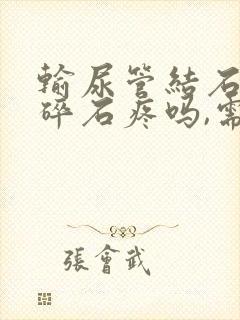 輸尿管結石
碎石疼吗,需
張會武